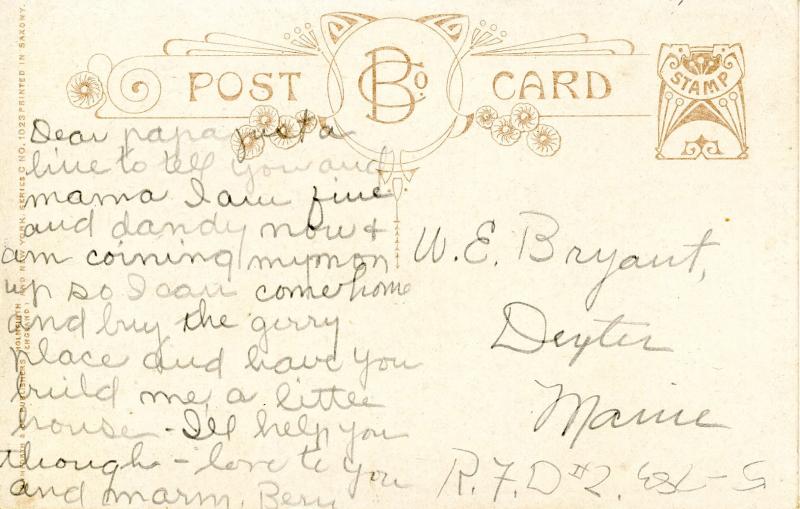 POST CARD
BCo.
STAMP
Dear papa just a
line to tell you and
mama I am fine
and dandy now &
am coining my mon
up so I can come home
and buy the gerry
place and have you
build me a little
house - I'll help you
though - love to you
and marm. Bery
W. E. Bryant,
Dexter
Maine
R. F. D #2.
SERIES C NO. 1023 PRINTED IN SAXONY.
AND NEW YORK.
ENGLAND)
PUBLISHERS